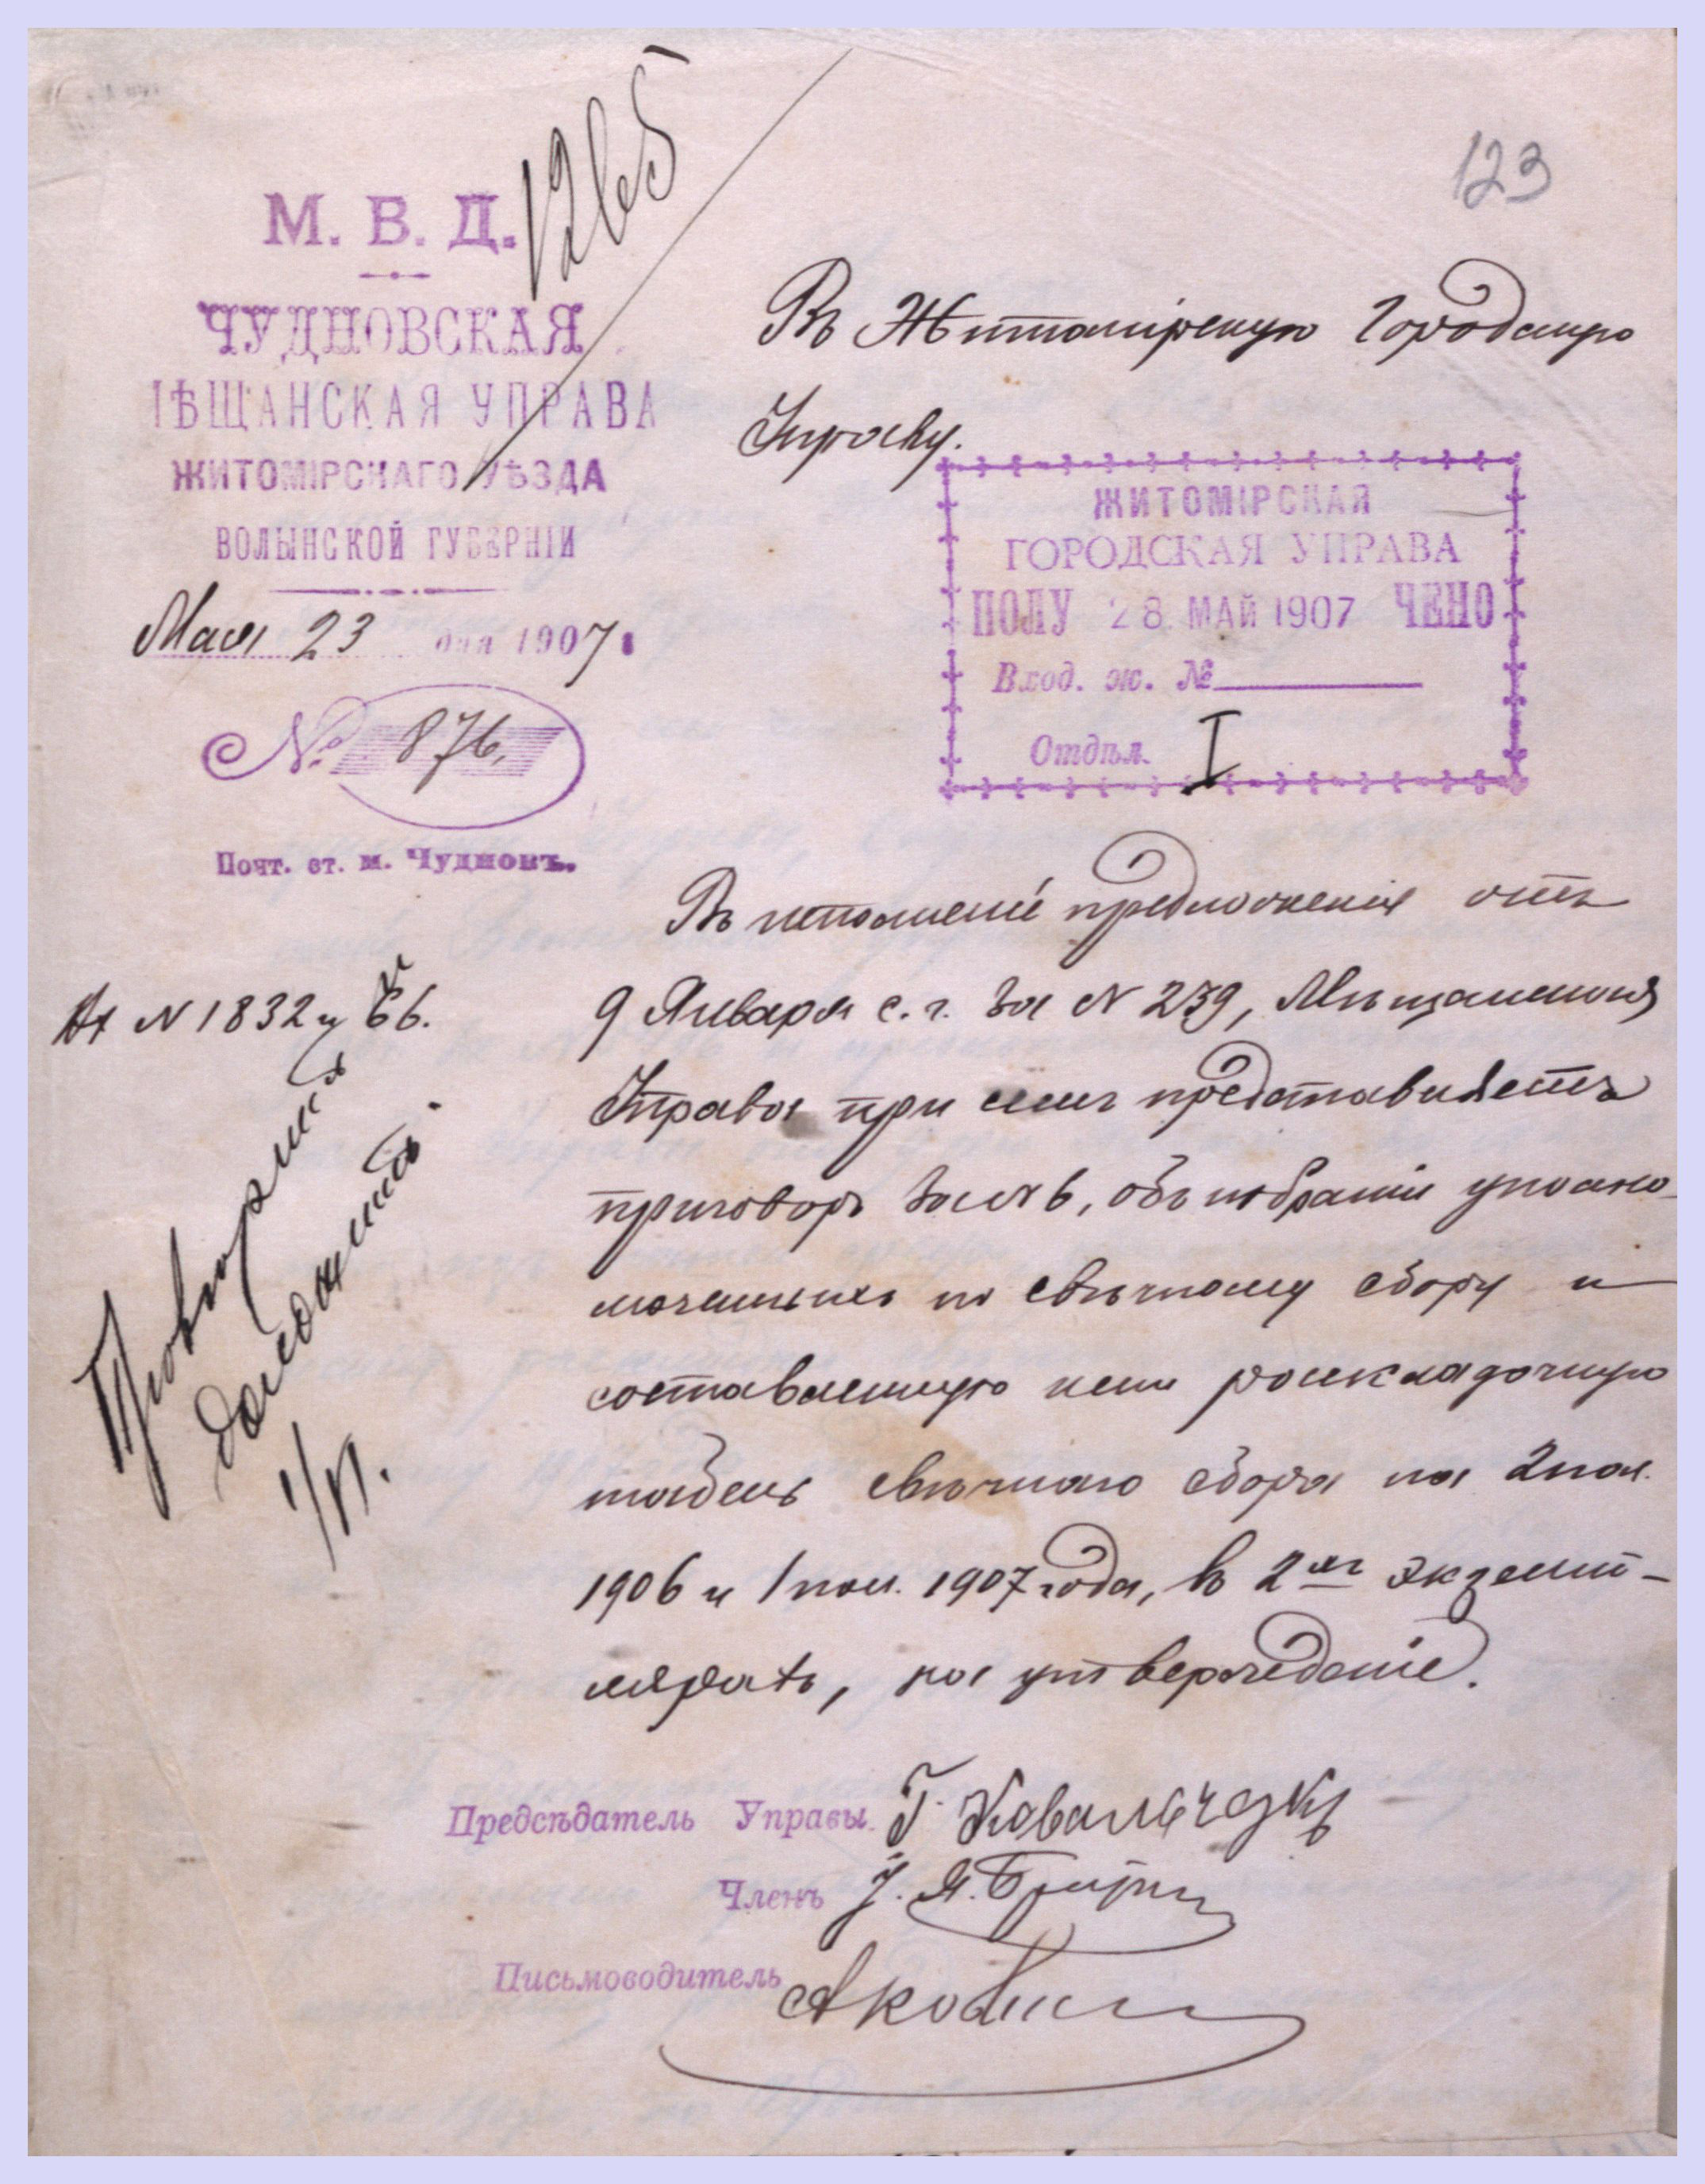 1265
123
М. В. Д.
ЧУДНОВСКАЯ
МѢЩАНСКАЯ УПРАВА
ЖИТОМІРСКАГО УѢЗДА
ВОЛЫНСКОЙ ГУБЕРНІИ
Мая 23 дня 1907
№ 876.
Почт. ст. м. Чудновъ.
Въ Житомірскую Городскую
Управу.
ЖИТОМІРСКАЯ
ГОРОДСКАЯ УПРАВА
ПОЛУ 28 МАЙ 1907 ЧЕНО
Вход. ж. №
Отдѣл. I
Въ исполненіе предложенія отъ
9 Января с. г. за N 239, Мѣщанская
Управа при семъ представляетъ
приговоръ за N 6, объ избраніи уполно-
моченныхъ по свѣчному сбору и
составленную ими раскладочную
табель свѣчнаго сбора на 2 пол.
1906 и 1 пол. 1907 года, въ 2хъ экземп-
лярахъ, на утвержденіе.
N 1832
доложить.
1/VI.
Предсѣдатель Управы Г. Ковальчукъ
Членъ
Письмоводитель